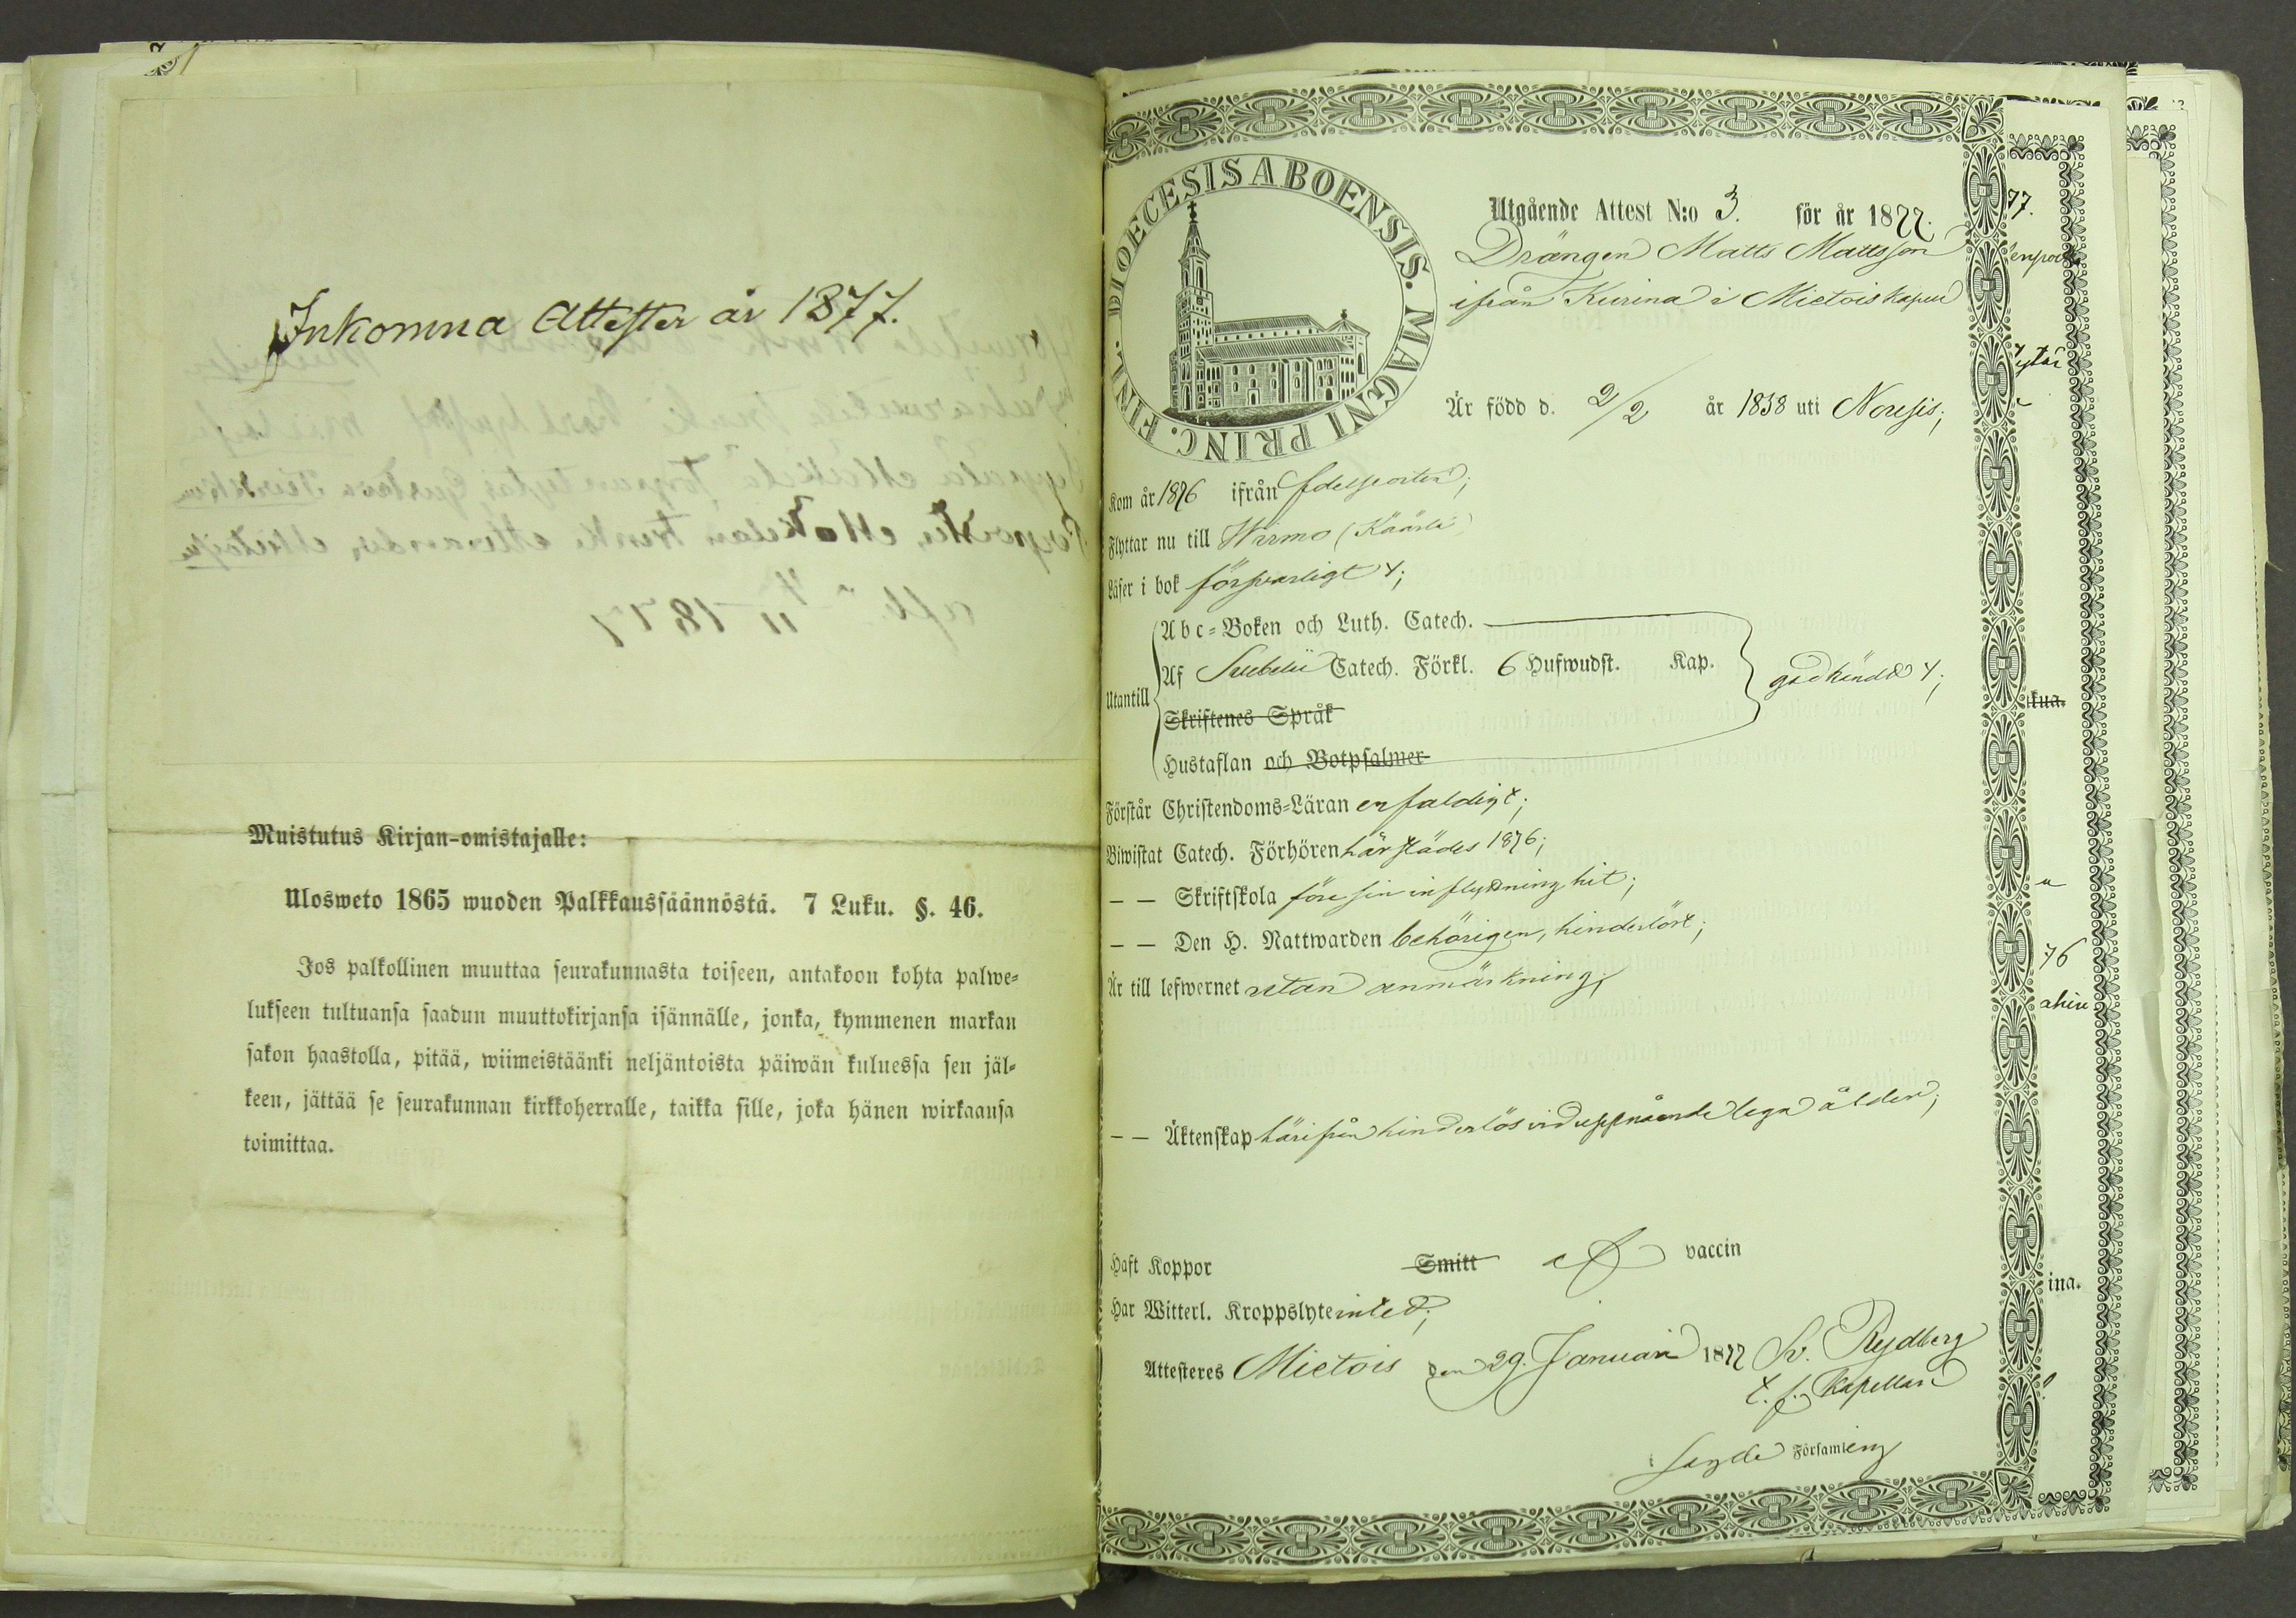 Inkomna Attester år 1877.
Muistutus Kirjan-omistajalle:
Ulosweto 1865 wuoden Palkkaussäännöstä. 7 Luku. §. 46.
Jos palkollinen muuttaa seurakunnasta toiseen, antakoon kohta palwe-
lukseen tultuansa saadun muuttokirjansa isännälle, jonka, kymmenen markan
sakon haastolla, pitää, wiimeistäänki neljäntoista päiwän kuluessa sen jäl-
keen, jättää se seurakunnan kirkkoherralle, taikka sille, joka hänen wirkaansa
toimittaa.
FINL. DIOECESIS ABOENSIS. MAGNI PRINC.
Utgående Attest N:o 3. för år 1877.
Drängen Matts Mattsson
ifrån Kurina i Mietois kapell
Är född d. 2/2 år 1838 uti Nousis;
Kom år 1876 ifrån
Flyttar nu till Wirmo (Käärlä)
Läser i bok försvarligt;
Utantill
Abc-Boken och Luth. Catech.
Af Svebelii Catech. Förkl. 6 Hufwudst. Kap.
godkändt;
Skriftenes Språk
Hustaflan och Botpsalmer
Förstår Christendoms-Läran enfaldigt;
Biwistat Catech. Förhören härstädes 1876;
— — Skriftskola före sin inflyttning hit;
— — Den H. Nattwarden behörigen, hinderlöst;
Är till lefwernet utan anmärkning;
— — Äktenskap härifrån hinderlös vid uppnående laga ålder;
Haft Koppor Smitt af vaccin
Har Witterl. Kroppslyte intet;
Attesteres Mietois den 29. Januari 1877 Rydberg
t. f. Kapellan
Församling
77.
76
ina.
kua.